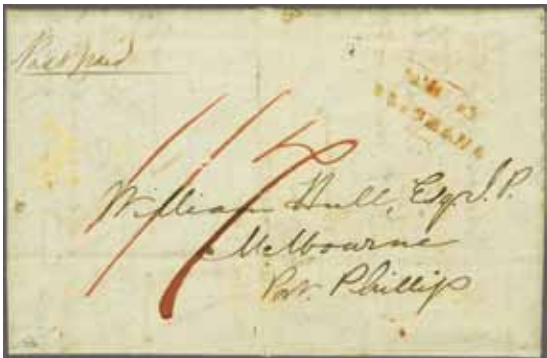 Post paid
William Hull, Esqr J.P.
Melbourne
Port Phillip